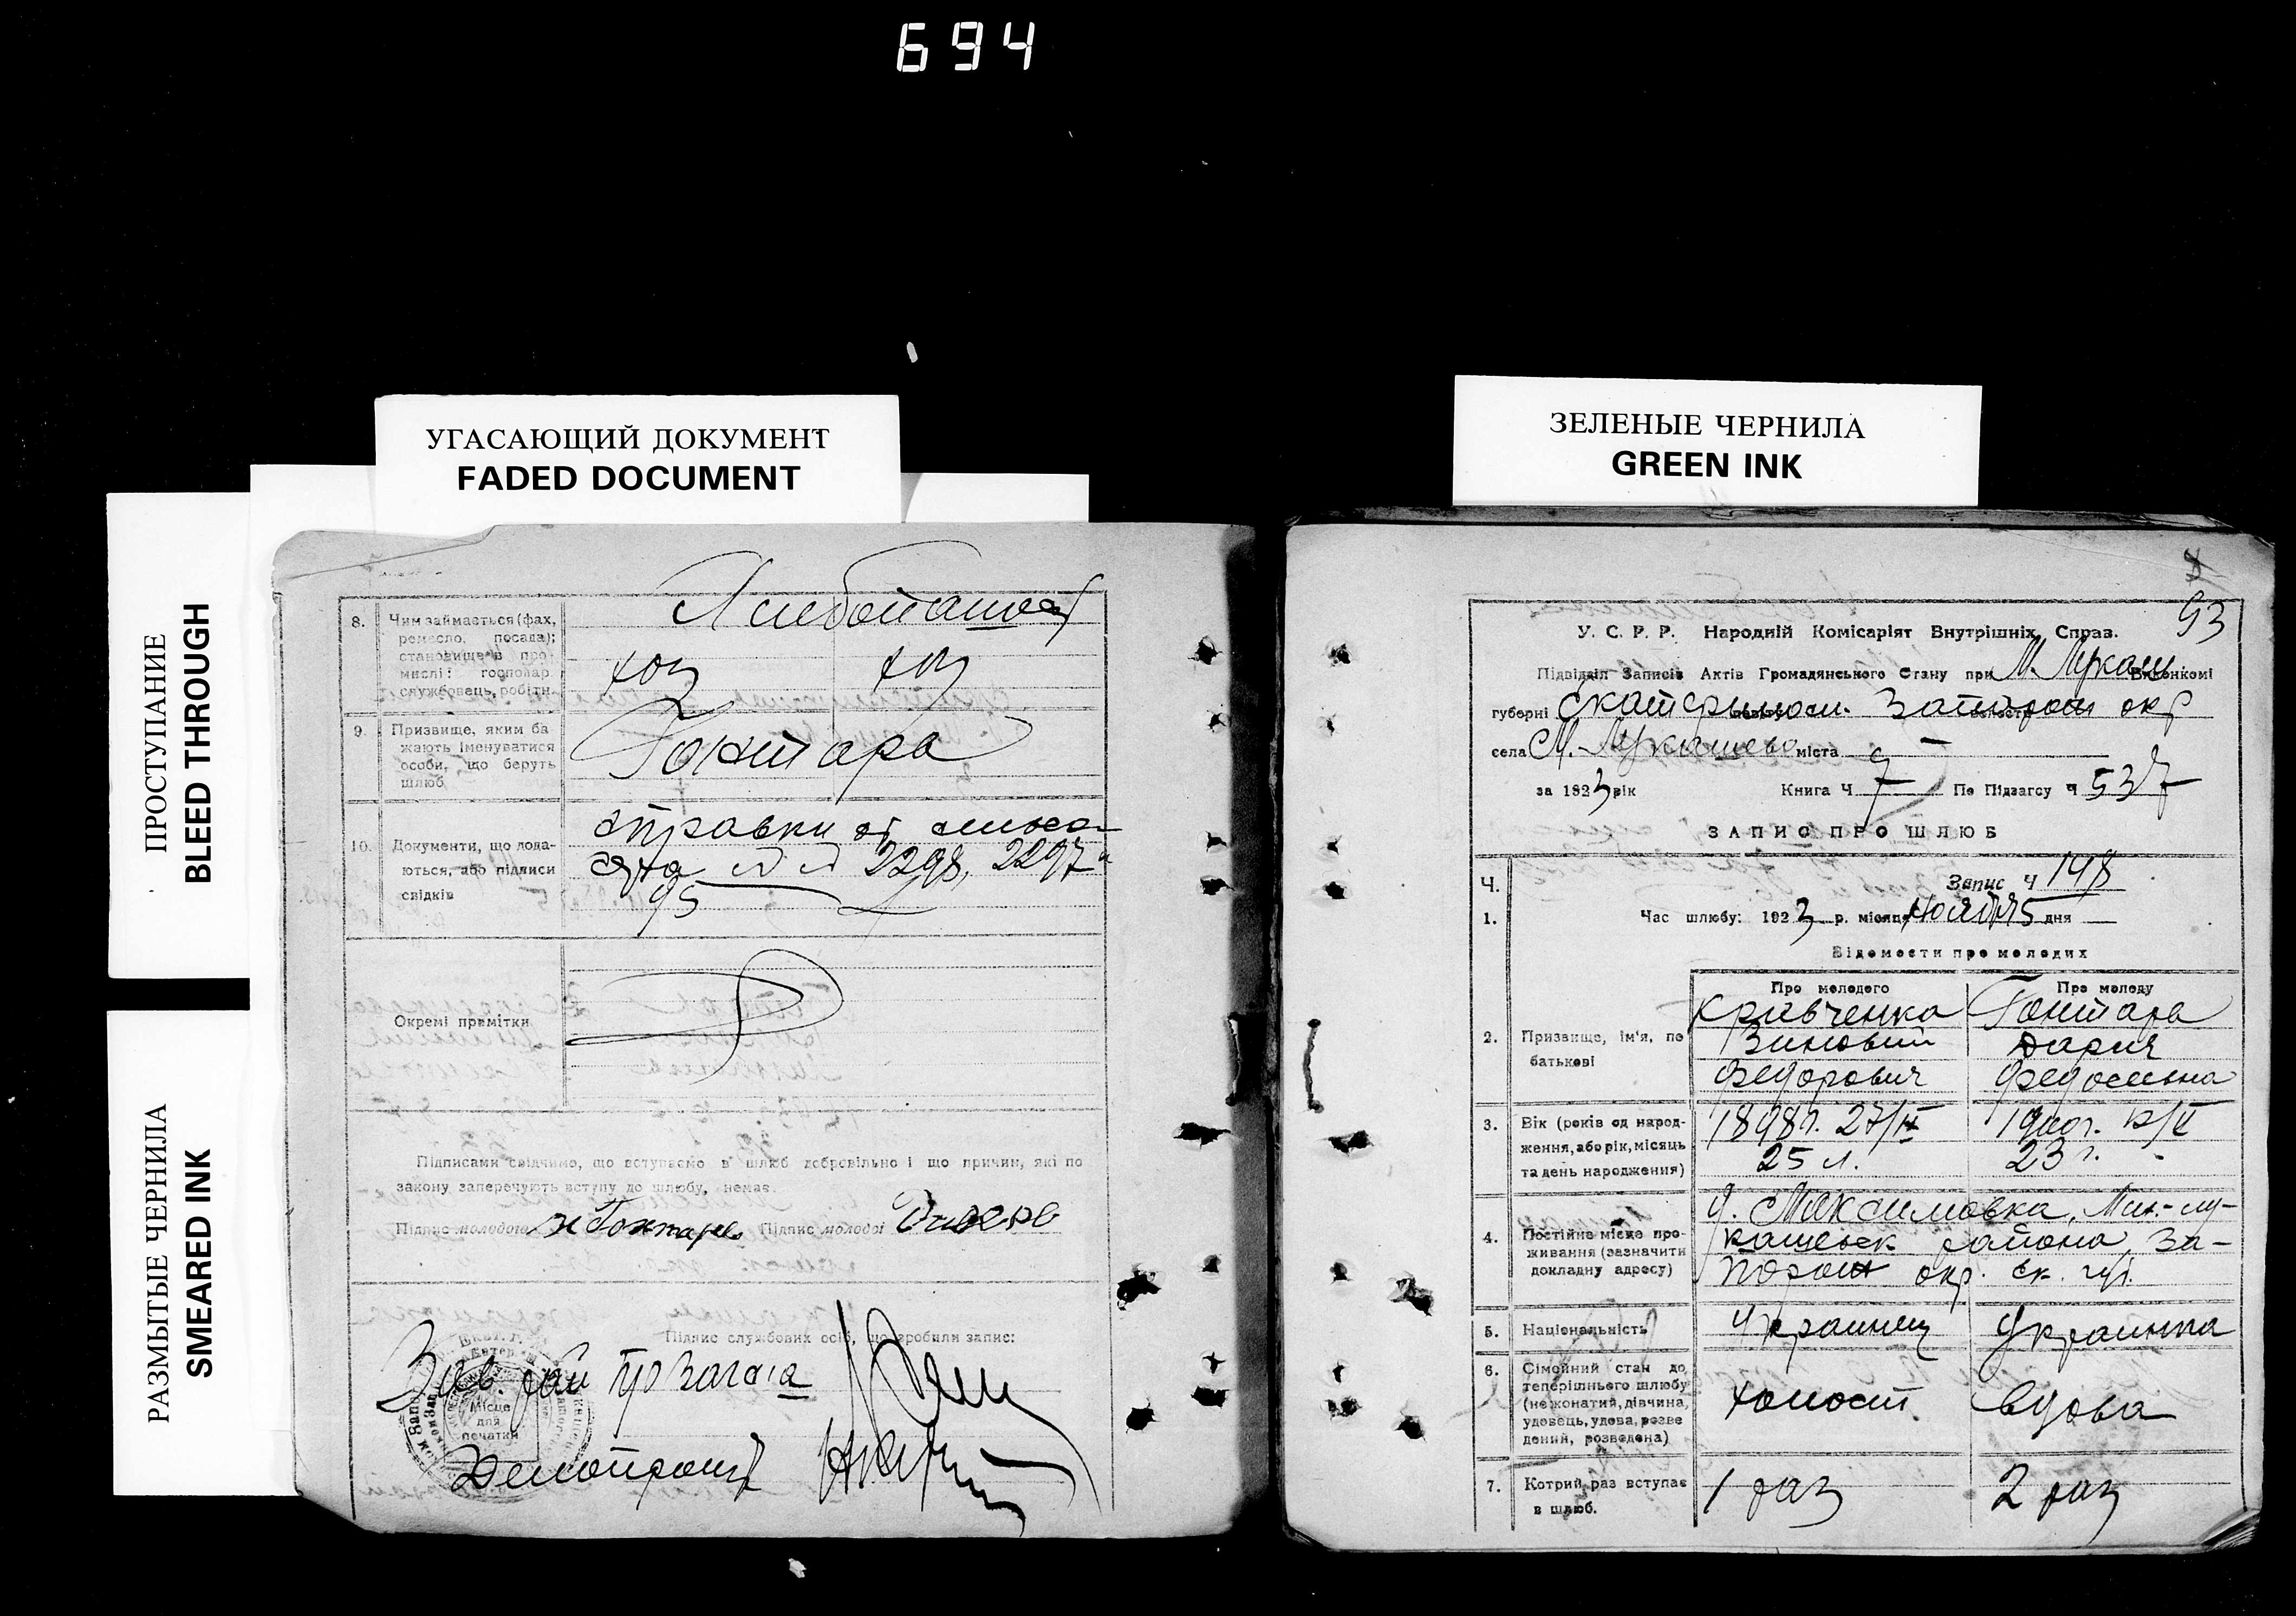 694
УГАСАЮЩИЙ ДОКУМЕНТ
FADED DOCUMENT
ПРОСТУПАНИЕ
BLEED THROUGH
РАЗМЫТЫЕ ЧЕРНИЛА
SMEARED INK
ЗЕЛЕНЫЕ ЧЕРНИЛА
GREEN INK
8. Чим займається (фах,
ремесло, посада);
становище в про-
мислі: господар
службовець, робітн.
Хлебопашест
хоз хоз
9. Призвище, яким ба
жають іменуватися
особи, що беруть
шлюб
Гонтара
10. Документи, що дода-
ються, або підписи
свідків
справки от
2298, 2297 и
95
Окремі примітки
Підписами свідчимо, що вступаємо в шлюб добровільно і що причин, які по
закону заперечують вступу до шлюбу, немає.
Підпис молодого Підпис молодої
Підпис службових осіб, що зробили запис:
Зав. рай
Місце
для
печатки
Делопроизв
93
У. С. Р. Р. Народній Комісаріят Внутрішніх Справ.
Підвідділ Записів Актів Громадянського Стану при М. Лукаш Виконкомі
губерні Екатеринос. Запорож окр
села М.-Лукашево міста —
за 1923 рік Книга Ч 7 По Підзагсу Ч 537
ЗАПИС ПРО ШЛЮБ
Ч. Запис Ч 148
1. Час шлюбу: 1923 р. місяця Ноября 5 дня
Відомости про молодих
Про молодого Про молоду
2. Призвище, ім'я, по
батькові
Кривченко Гонтара
Зиновий Дария
Федорович Федосиевна
3. Вік (років од народ-
ження, або рік, місяць
та день народження)
1898г. 1900г.
25 л. 23 г.
4. Постійне місце про-
живання (зазначити
докладну адресу)
д. Максимовка, Мих.-лу-
кашевск района, За-
порож окр. Ек. губ.
5. Національність
Украинец Украинка
6. Сімейний стан до
теперішнього шлюбу
(нежонатий, дівчина,
удовець, удова, розве
дений, розведена)
холост вдова
7. Котрий раз вступає
в шлюб.
1 раз 2 раз